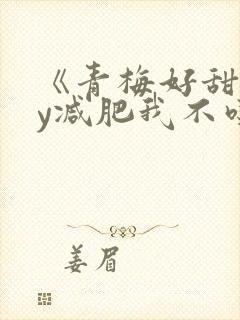 《青梅好甜
y减肥我不吃
姜眉